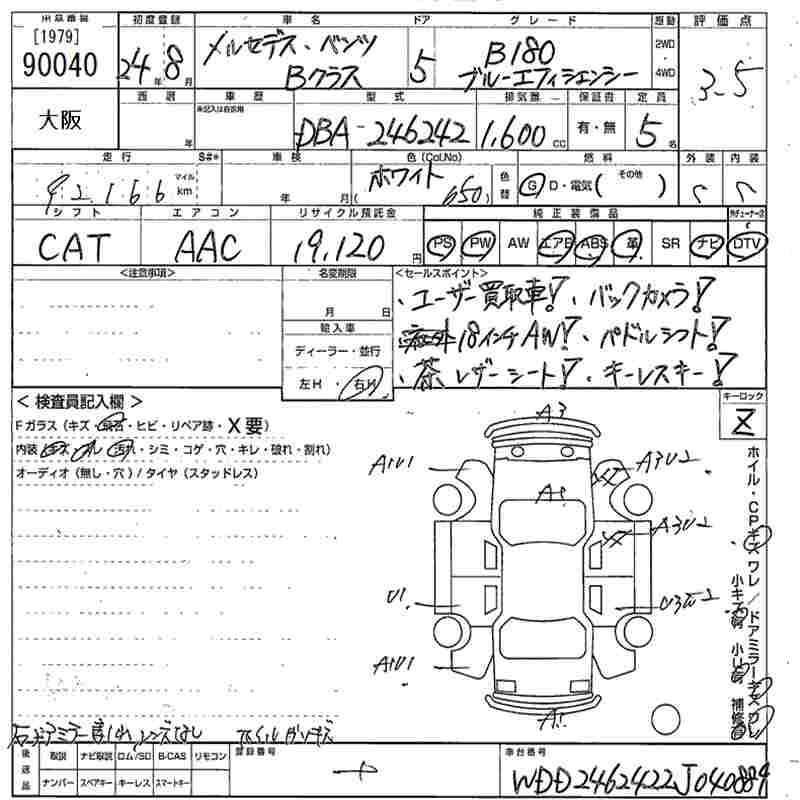 [1979]
90040
大阪
初度登録
24年8月
車名
メルセデス・ベンツ
Bクラス
ドア
5
グレード
B180
ブルーエフィシェンシー
駆動
2WD
4WD
評価点
3.5
西暦
年
車歴
未記入は自家用
型式
DBA-246242
排気量
1,600cc
保証書
有・無
定員
5名
走行
92,166
マイル
km
S#*
車検
年 月
色(Col,No)
ホワイト
(650)
色替
燃料
G D・電気( その他 )
外装
内装
シフト
CAT
エアコン
AAC
リサイクル預託金
19,120円
純正装備品
PS PW AW エアB ABS 革 SR ナビ DTV
<注意事項>
名変期限
月 日
輸入車
ディーラー・並行
左H・右H
<セールスポイント>
、ユーザー買取車!、バックカメラ!
18インチAW!、パドルシフト!
、茶レザーシート!、キーレスキー!
<検査員記入欄>
Fガラス(キズ・飛石・ヒビ・リペア跡・X要)
内装(キズ・スレ・汚れ・シミ・コゲ・穴・キレ・破れ・割れ)
オーディオ(無し・穴)/タイヤ(スタッドレス)
キーロック
Z
A3
A1U1
A3U2
A1
A3U2
U1
U3W2
A1U1
A1
ホイル・CPキズ ワレ/ドアミラーキズ ワレ
小キズ有 小U有 補修有
右ドアミラー割れ レンズなし ホイルガリキズ
後送品
取説 ナビ取説 ロム/SD B-CAS リモコン
ナンバー スペアキー キーレス スマートキー
登録番号
車台番号
WDD2462422J040884